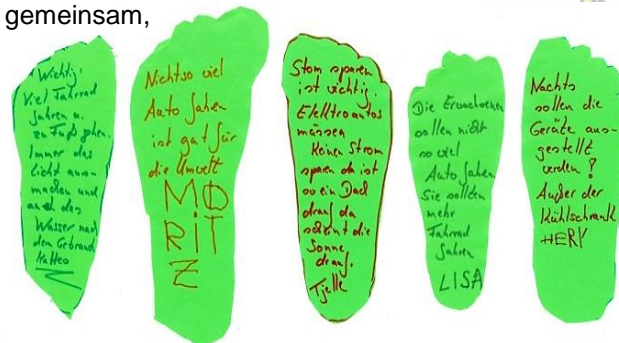 gemeinsam,
Wichtig!
Viel Fahrrad
fahren u.
zu Fuß gehen.
Immer das
Licht aus-
machen und
auch das
Wasser nach
dem Gebrauch
Matteo
Nicht so viel
Auto fahren
ist gut für
die Umwelt
MO
RiT
Z
Strom sparen
ist wichtig.
Elektroautos
müssen
keinen Strom
sparen da ist
so ein Dach
drauf da
scheint die
Sonne
drauf.
Tjelle
Die Erwachsenen
sollen nicht
so viel
Auto fahren.
Sie sollten
mehr
Fahrrad
fahren
LISA
Nachts
sollen die
Geräte aus-
gestellt
werden!
Außer der
Kühlschrank
HERY